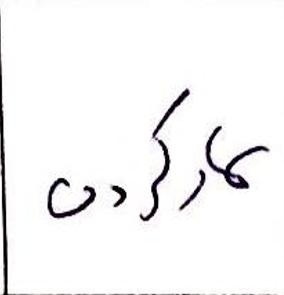 کار کردن